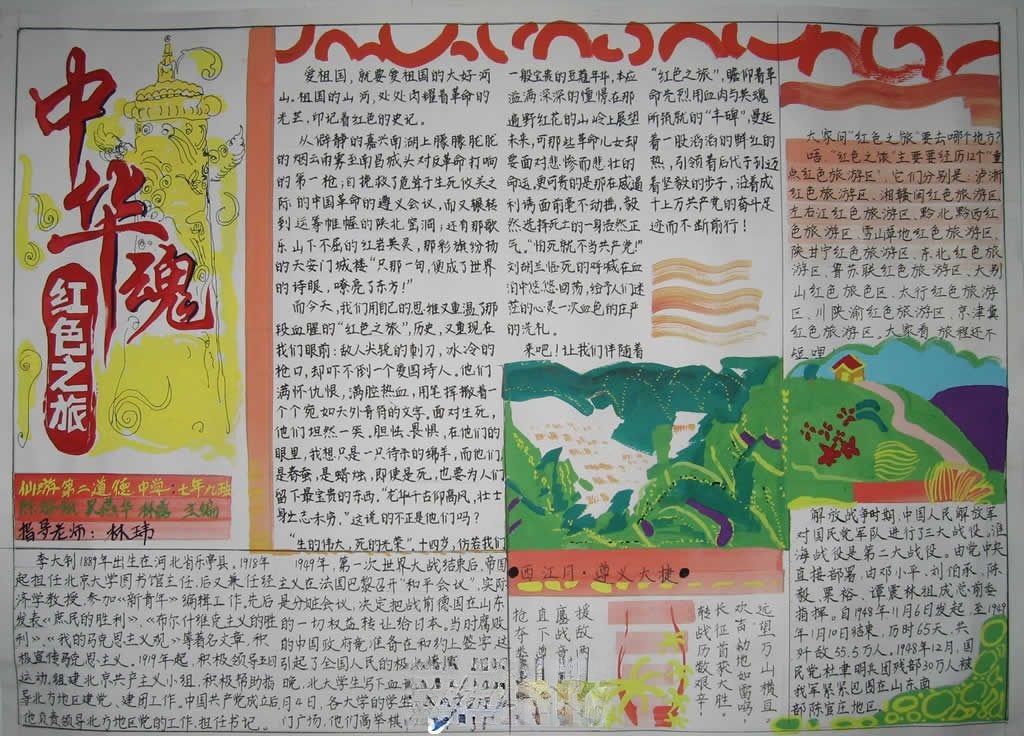 中华魂
红色之旅
仙游第二道德中学:七年九班
指导老师: 林玮
爱祖国,就要爱祖国的大好河
山。祖国的山河,处处闪耀着革命的
光芒,印记着红色的史记。
从僻静的嘉兴南湖上朦朦胧胧
的烟云南雾至南昌城头对反革命打响
的第一枪;自挽救了危难于生死攸关之
际的中国革命的遵义会议,而又辗转
到运筹帷幄的陕北窑洞;还有那歌
乐山下不屈的红岩英灵,那彩旗纷扬
的天安门城楼“只那一句,便成了世界
的诗眼,嘹亮了东方!”
而今天,我们用自己的思维又重温了那
段血腥的“红色之旅”,历史,又重现在
我们眼前:敌人尖锐的刺刀,冰冷的
枪口,却吓不倒一个爱国诗人。他们
满怀仇恨,满腔热血,用笔挥散着一
个个宛如天外奇符的文字。面对生死,
他们坦然一笑。胆怯、畏惧,在他们的
眼里,我想只是一只待杀的绵羊,而他们,
是春蚕,是蜡烛,即使是死,也要为人们
留下最宝贵的东西。“光华千古仰高风,壮士
身亡志未穷。”这说的不正是他们吗?
“生的伟大,死的光荣”。十四岁,仿若我们
一般宝贵的豆蔻年华,本应
溢满深深的憧憬在那
遍野红花的山岭上展望
未来,可那些革命儿女却
要面对悲惨而悲壮的
命运,更可贵的是那在威逼
利诱面前毫不动摇,毅
然选择死亡的一身浩然正
气。“怕死就不当共产党!”
刘胡兰临死的呼喊在血
泊中悠悠回荡,给予人们迷
茫的心灵一次血色的庄严
的洗礼。
来吧!让我们伴随着
“红色之旅”,瞻仰着革
命先烈用血肉与英魂
所筑就的“丰碑”,蔓延
着一股滔滔的鲜红的
热,引领着后代子孙迈
着坚毅的步子,沿着成
千上万共产党的奋斗足
迹而不断前行!
大家问“红色之旅”要去哪个地方?
唔,“红色之旅”主要要经历12个“重
点红色旅游区”,它们分别是:沪浙
红色旅游区、湘赣闽红色旅游区、
左右江红色旅游区、黔北黔西红
色旅游区、雪山草地红色旅游区、
陕甘宁红色旅游区、东北红色旅游
区、鲁苏联红色旅游区、大别
山红色旅色区、太行红色旅游
区、川陕渝红色旅游区、京津冀
红色旅游区。大家看,旅程还不
短哩
李大钊1889年出生在河北省乐亭县。1918年
起担任北京大学图书馆主任,后又兼任经
济学教授,参加《新青年》编辑工作。先后
发表《庶民的胜利》、《布尔什维克主义的胜
利》、《我的马克思主义观》等著名文章,积
极宣传马克思主义。1919年起,积极领导五四
运动,组建北京共产主义小组,积极帮助指
导北方地区建党、建团工作。中国共产党成立后
他负责领导北方地区党的工作,担任书记。
1949年,第一次世界大战结束后,帝国
主义在法国巴黎召开“和平会议”,实际
是分赃会议,决定把战前德国在山东
的一切权益转让给日本。当时腐败
的中国政府竟准备在和约上签字,这
引起了全国人民的极
晚,北大学生写下血
月4日,各大学的学生
门广场,他们高举棋
●西江月·遵义大捷●
近望万山横亘,
欢声动地如雷鸣。
长征首次获全胜。
转战历数艰辛
解放战争时期,中国人民解放军
对国民党军队进行了三大战役。淮
海战役是第二大战役。由党中央
直接部署,由邓小平、刘伯承、陈
毅、粟裕、谭震林组成总前委
指挥。自1948年11月6日发起,至1949
年1月10日结束,历时65天,共
歼敌55.5万人。1948年12月,国
民党杜聿明兵团残部30万人被
我军紧紧包围在山东南
部陈官庄地区。